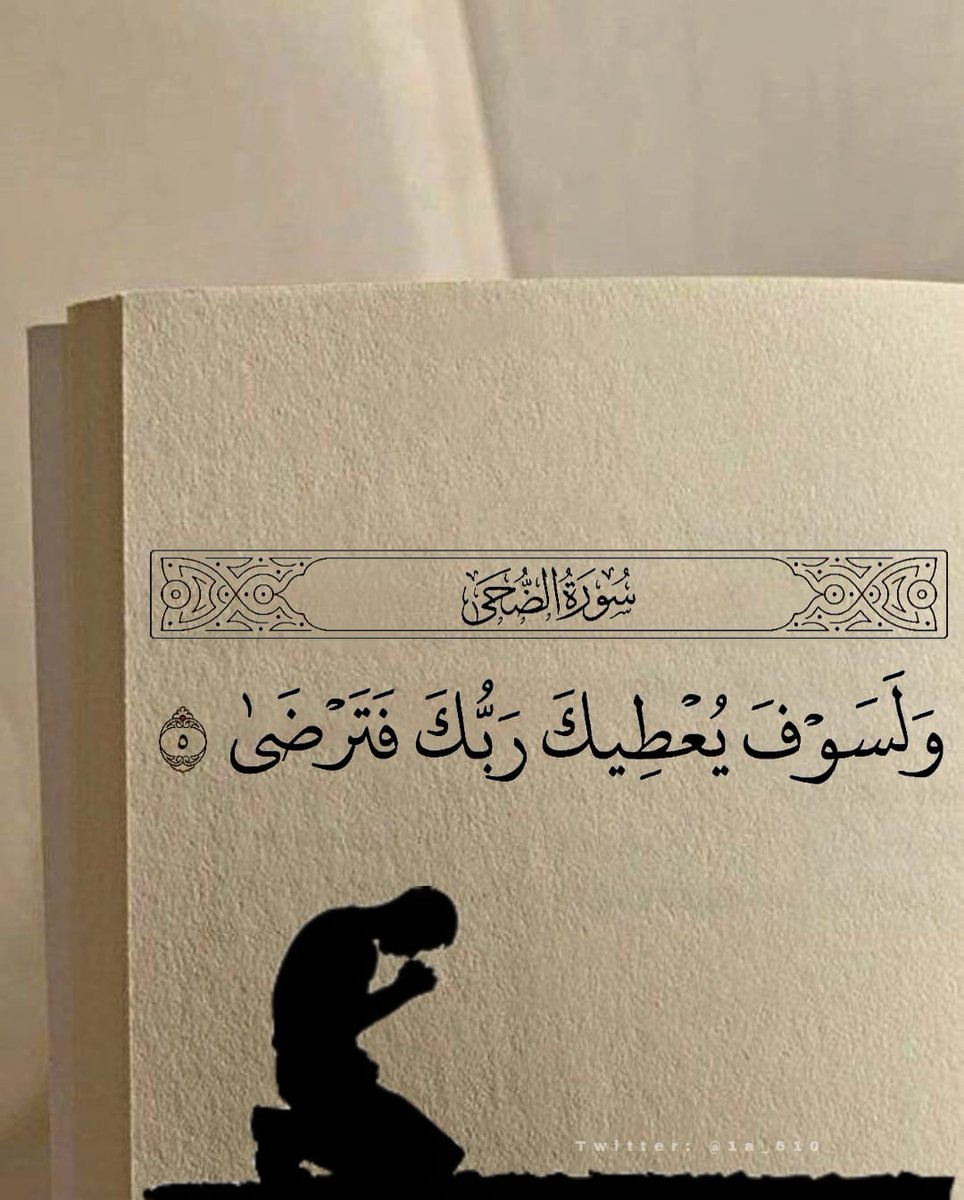 سُورَةُ الضُّحَىٰ
وَلَسَوْفَ يُعْطِيكَ رَبُّكَ فَتَرْضَىٰ ٥
Twitter: @1a_610